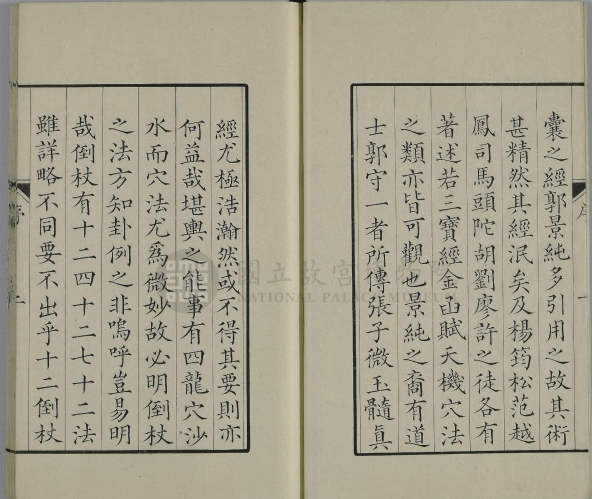 囊之經郭景純多引用之故其術
甚精然其經泯矣及楊筠松范越
鳳司馬頭陀胡劉廖許之徒各有
著述若三寶經金函賦天機穴法
之類亦皆可觀也景純之裔有道
士郭守一者所傳張子微玉髓眞
序
一
經尤極浩瀚然或不得其要則亦
何益哉堪輿之能事有四龍穴沙
水而穴法尤爲微妙故必明倒杖
之法方知卦例之非嗚呼豈易明
哉倒杖有十二四十二七十二法
雖詳略不同要不出乎十二倒杖
國立故宮博物院
NATIONAL PALACE MUSEUM